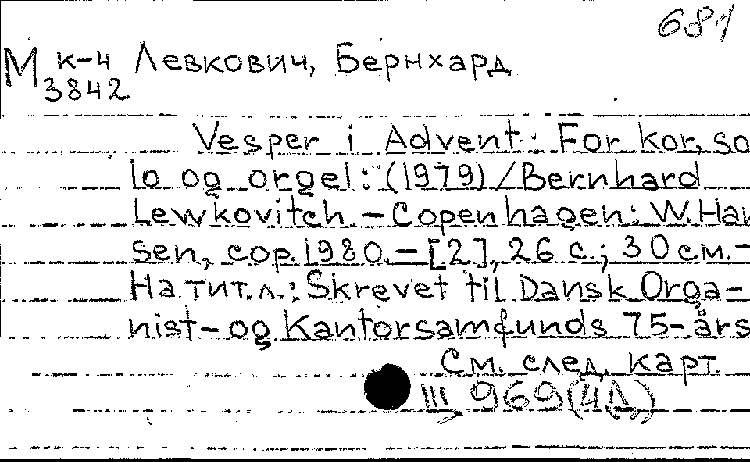 681
М к-ч Левкович, Бернхард
3842
Vesper i Advent: For kor, so
lo og orgel: (1979) / Bernhard
Lewkovitch. – Copenhagen: W. Han
sen, cop. 1980. – [2], 26 с.; 30 см. –
На тит. л.: Skrevet til Dansk Orga-
nist- og Kantorsamfunds 75-års
См. след. карт.
III 969 (4Д)